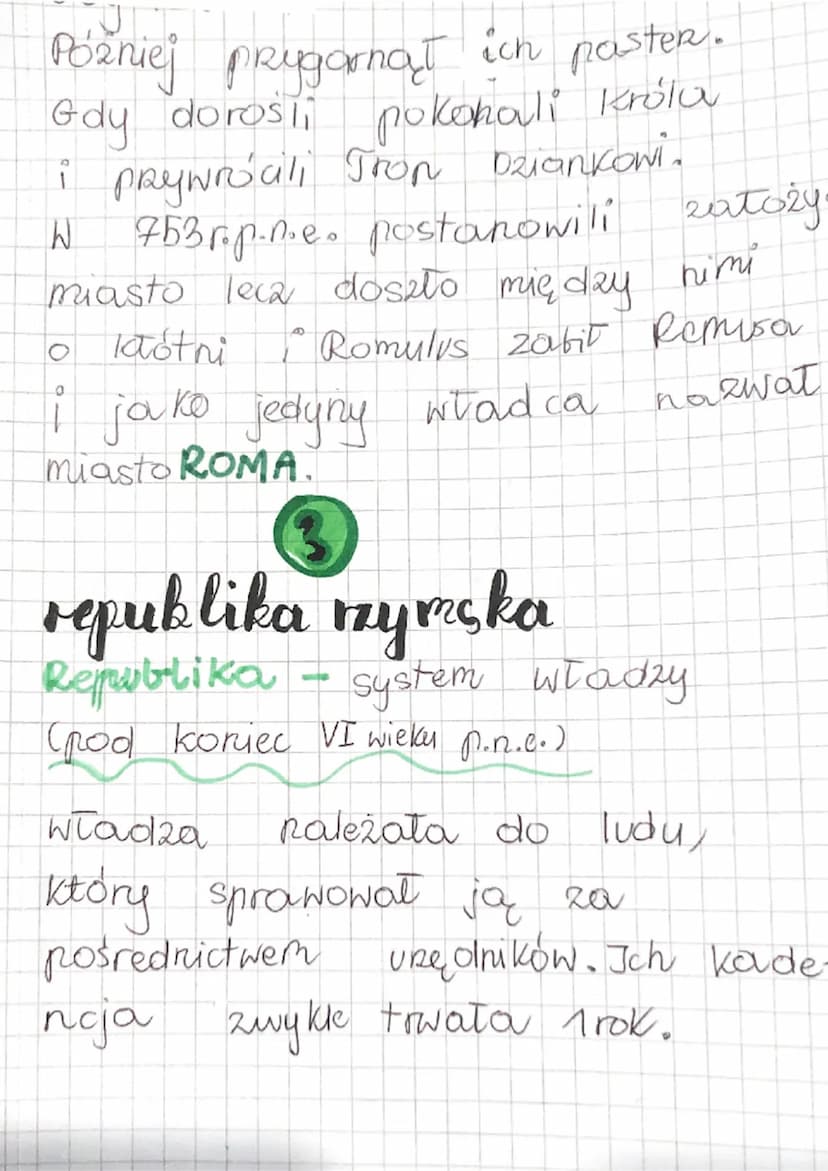 Później przygarnął ich paster.
Gdy dorośli pokonali Króla
i przywrócili Tron Dziankowi.
W 753r.p.n.e. postanowili założy
miasto lecz doszło między nimi
o kłótni i Romulus zabił Remusa
i jako jedyny władca nazwał
miasto ROMA.
3
republika rzymska
Republika - system władzy
(pod koniec VI wieku p.n.e.)
władza należała do ludu,
który sprawował ją za
pośrednictwem urzędników. Ich kade-
ncja zwykle trwała 1 rok.